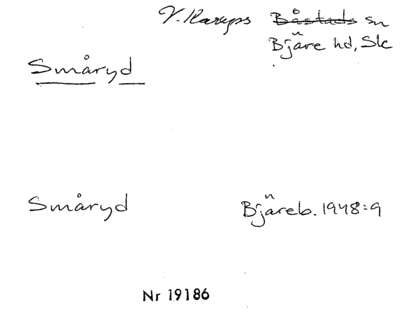 V. Karups ~~Båstads~~ sn
Bjäre hd, Skc
Småryd
Småryd Bjäreb. 1948:9
Nr 19186